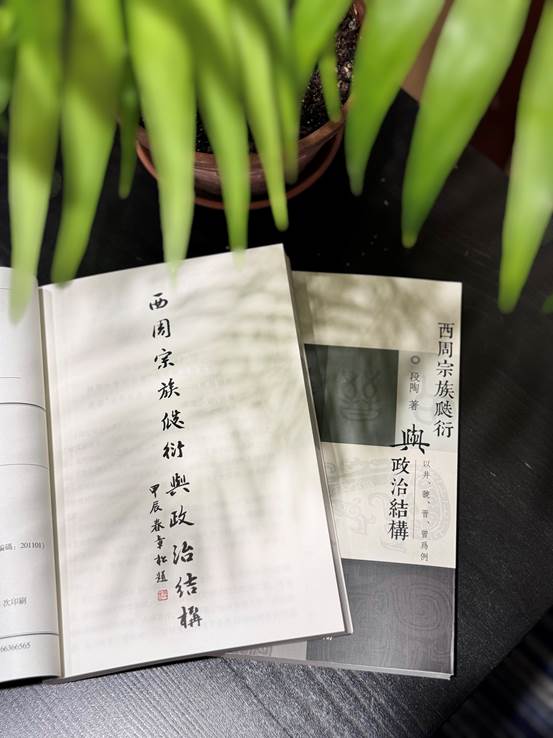 編碼：201101)
次印刷
66366565
西周宗族瓞衍與政治結構
甲辰春 松題
西周宗族瓞衍
與政治結構
以井、虢、晉、曾爲例
段陶 著